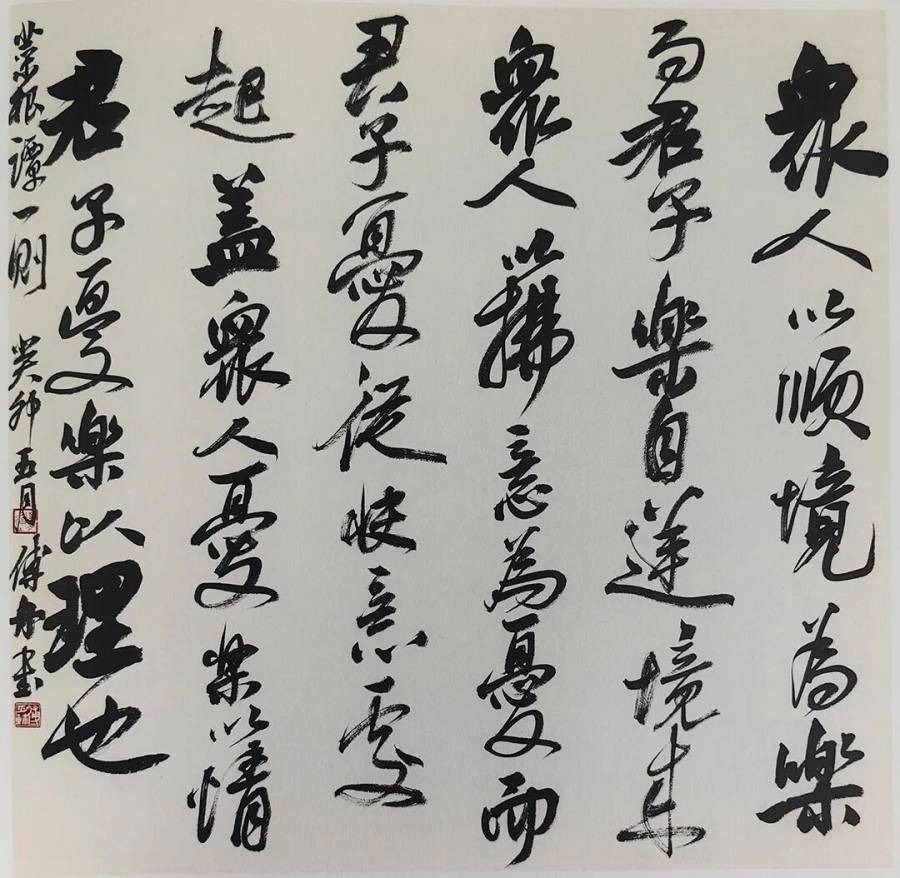 衆人以順境為樂
而君子樂自逆境来
衆人以拂意為憂而
君子憂從快意處
起蓋衆人憂樂以情
君子憂樂以理也
菜根譚一則 癸卯五月 傅 書